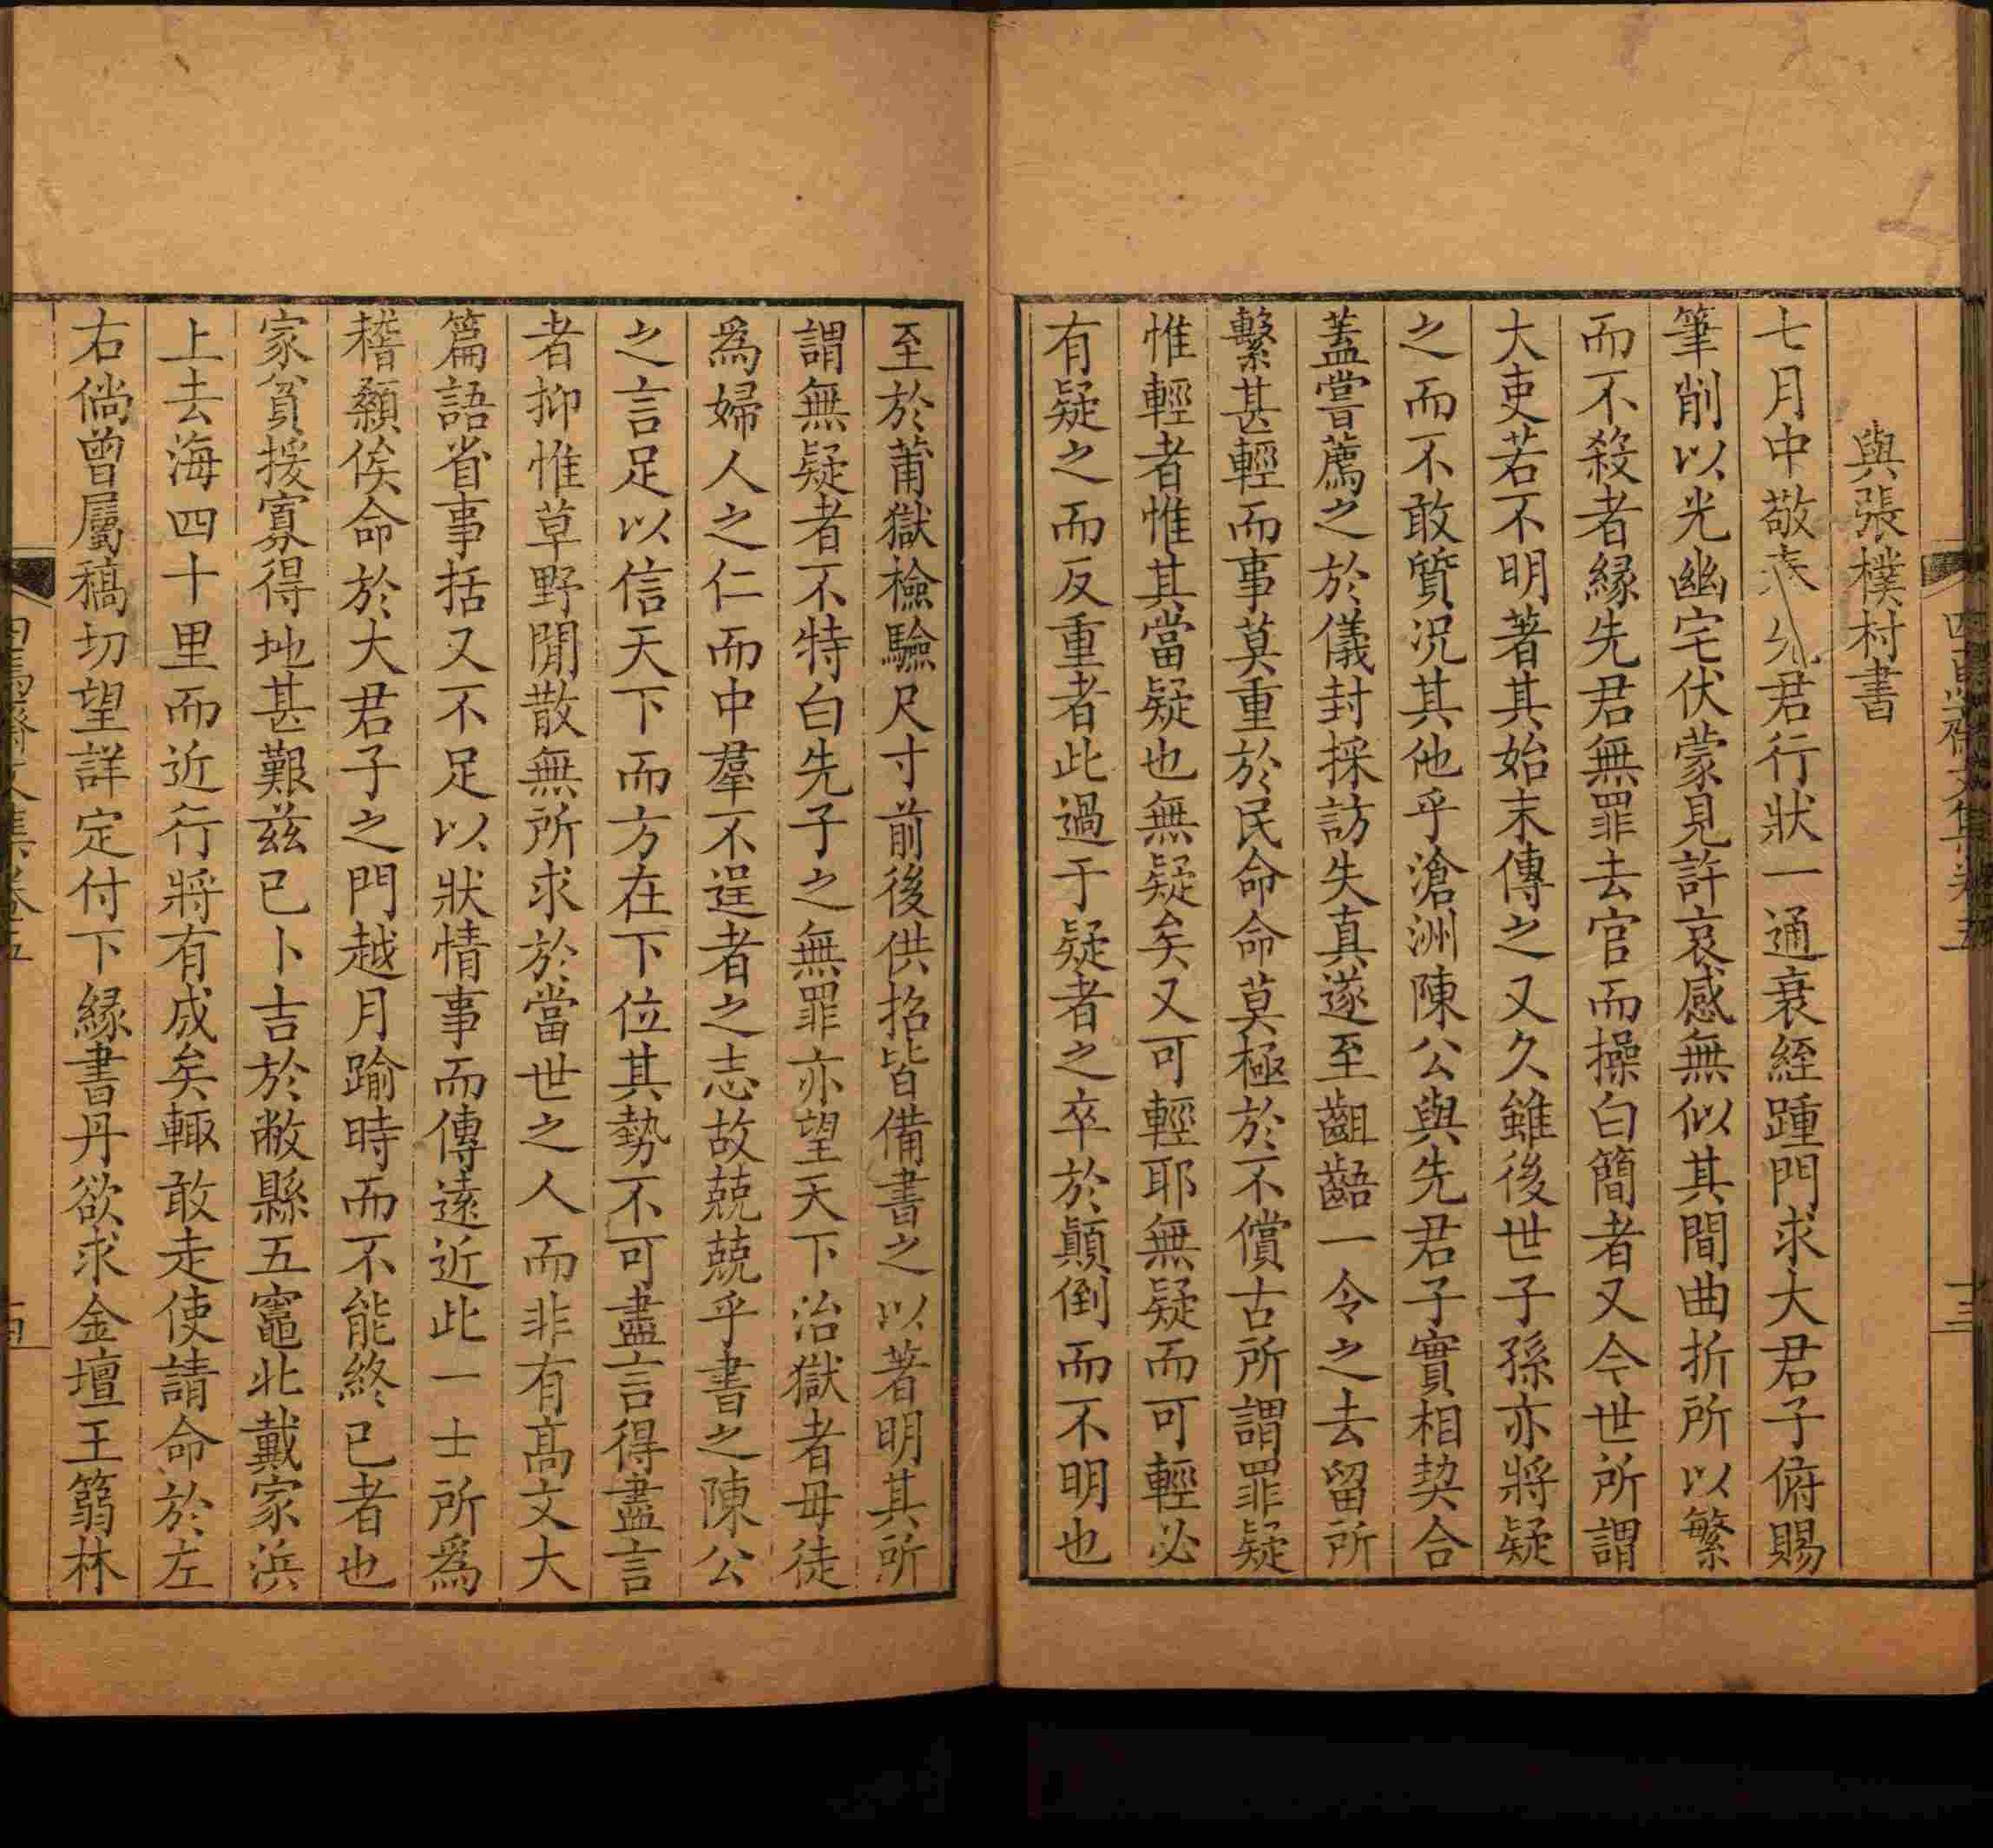 與張樸村書
七月中敬奉先君行狀一通衰絰踵門求大君子俯賜
筆削以光幽宅伏蒙見許哀感無似其間曲折所以繁
而不殺者緣先君無罪去官而操白簡者又今世所謂
大吏若不明著其始末傳之又久雖後世子孫亦將疑
之而不敢質況其他乎滄洲陳公與先君子實相契合
蓋嘗薦之於儀封採訪失真遂至齟齬一令之去留所
繫甚輕而事莫重於民命命莫極於不償古所謂罪疑
惟輕者惟其當疑也無疑矣又可輕耶無疑而可輕必
有疑之而反重者此過于疑者之卒於顛倒而不明也
至於莆獄檢驗尺寸前後供招皆備書之以著明其所
謂無疑者不特白先子之無罪亦望天下治獄者毋徒
為婦人之仁而中羣不逞者之志故兢兢乎書之陳公
之言足以信天下而方在下位其勢不可盡言得盡言
者抑惟草野閒散無所求於當世之人而非有高文大
篇語省事括又不足以狀情事而傳遠近此一士所為
稽顙俟命於大君子之門越月踰時而不能終已者也
家貧援寡得地甚艱茲已卜吉於敝縣五竈北戴家浜
上去海四十里而近行將有成矣輒敢走使請命於左
右倘曾屬稿切望詳定付下緣書丹欲求金壇王篛林